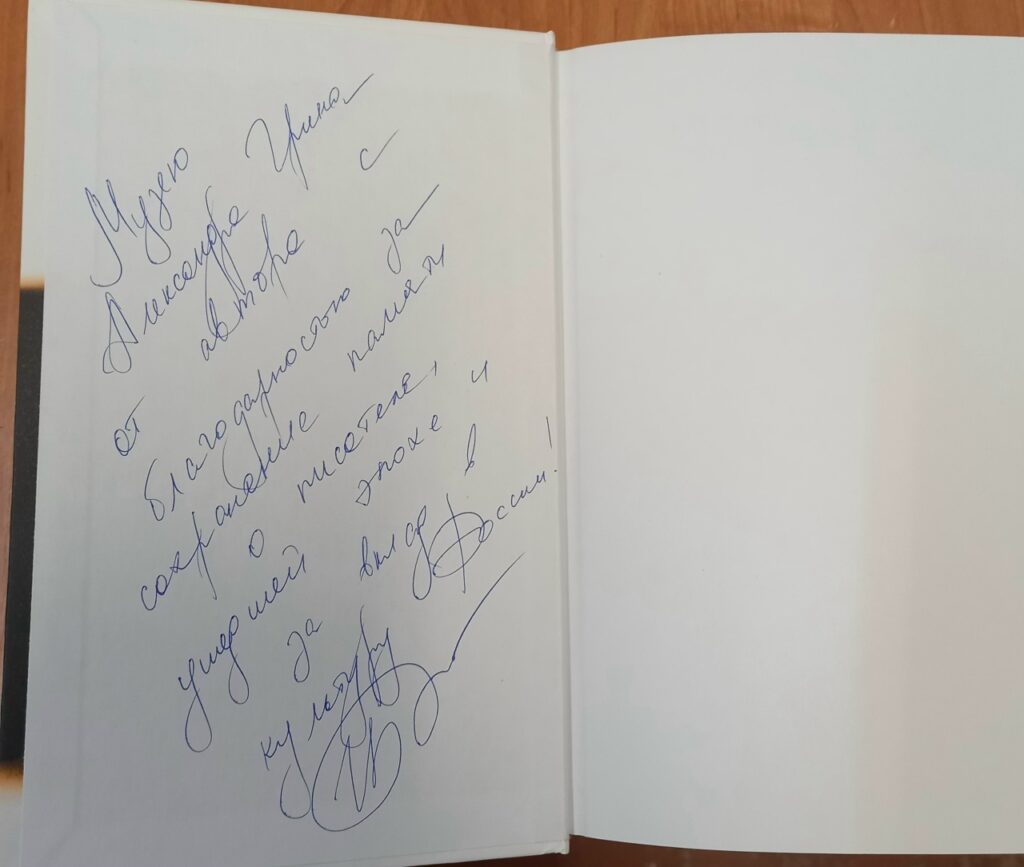 Музею
Александра Грина
от автора с
благодарностью за
сохранение памяти
о писателе,
ушедшей эпохе и
за вклад в
культуру России!